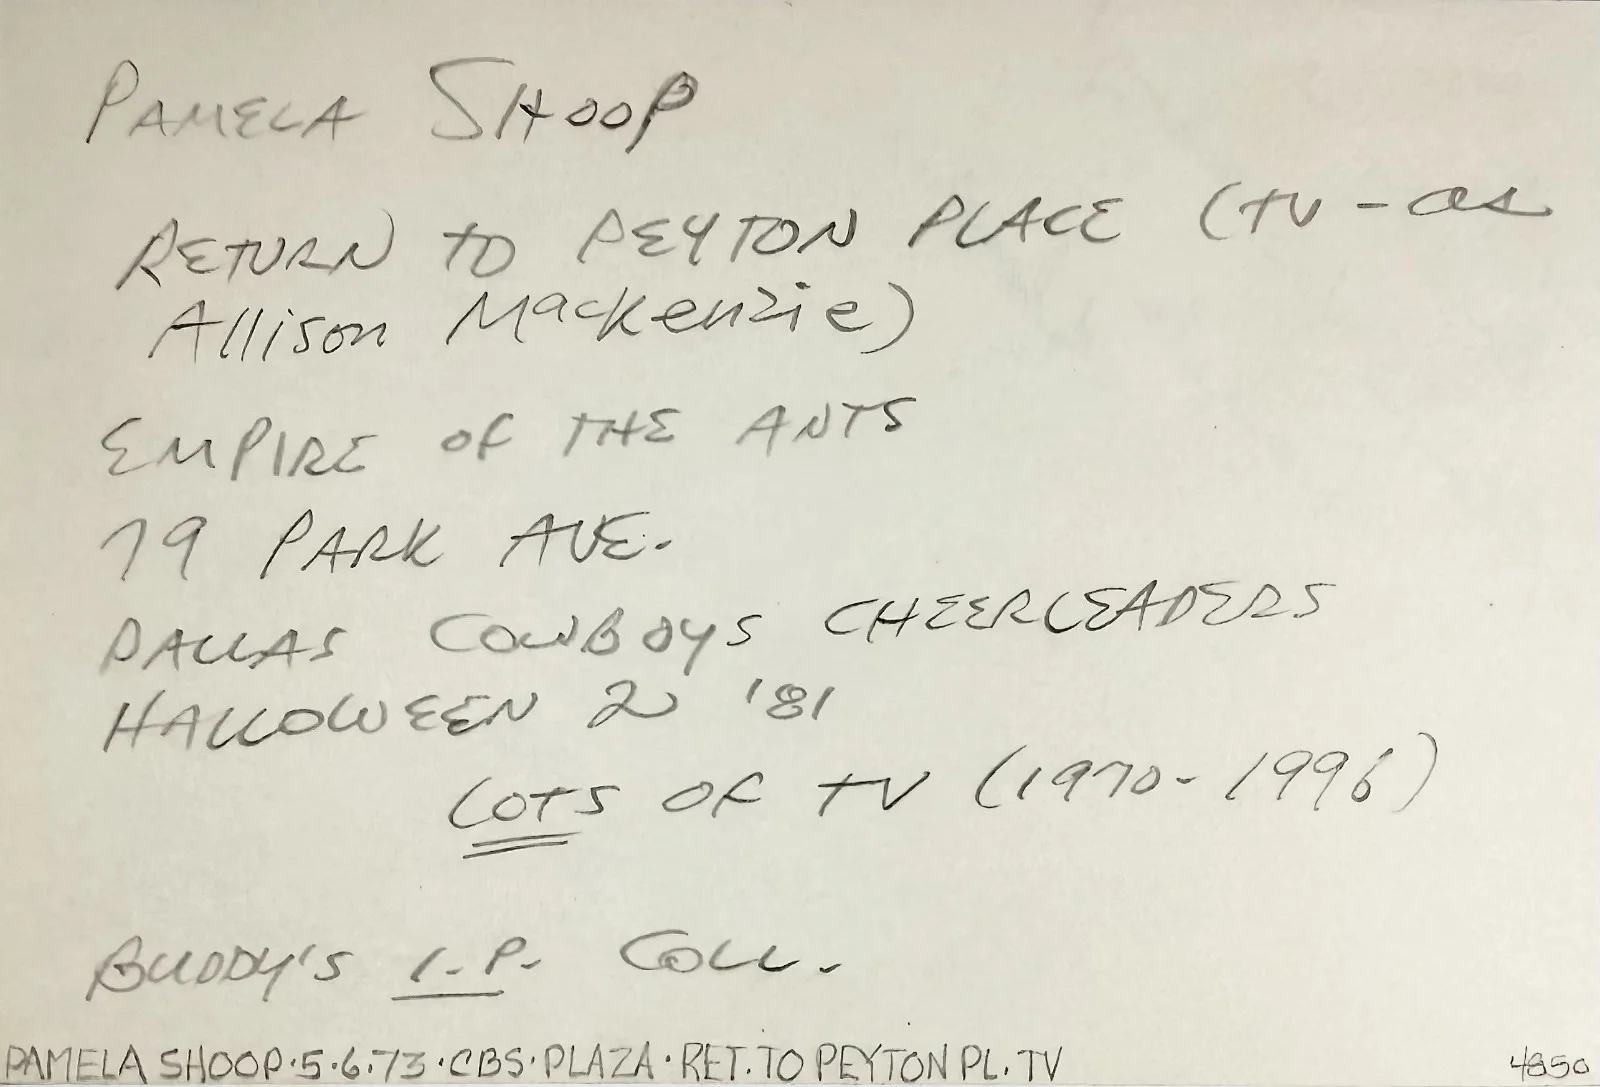 PAMELA SHOOP
RETURN TO PEYTON PLACE (TV - as
Allison Mackenzie)
EMPIRE OF THE ANTS
79 PARK AVE.
DALLAS COWBOYS CHEERLEADERS
HALLOWEEN 2 '81
LOTS OF TV (1970-1996)
BUDDY'S I.P. COLL.
PAMELA SHOOP·5·6·73·CBS·PLAZA·RET.TO PEYTON PL.TV
4850